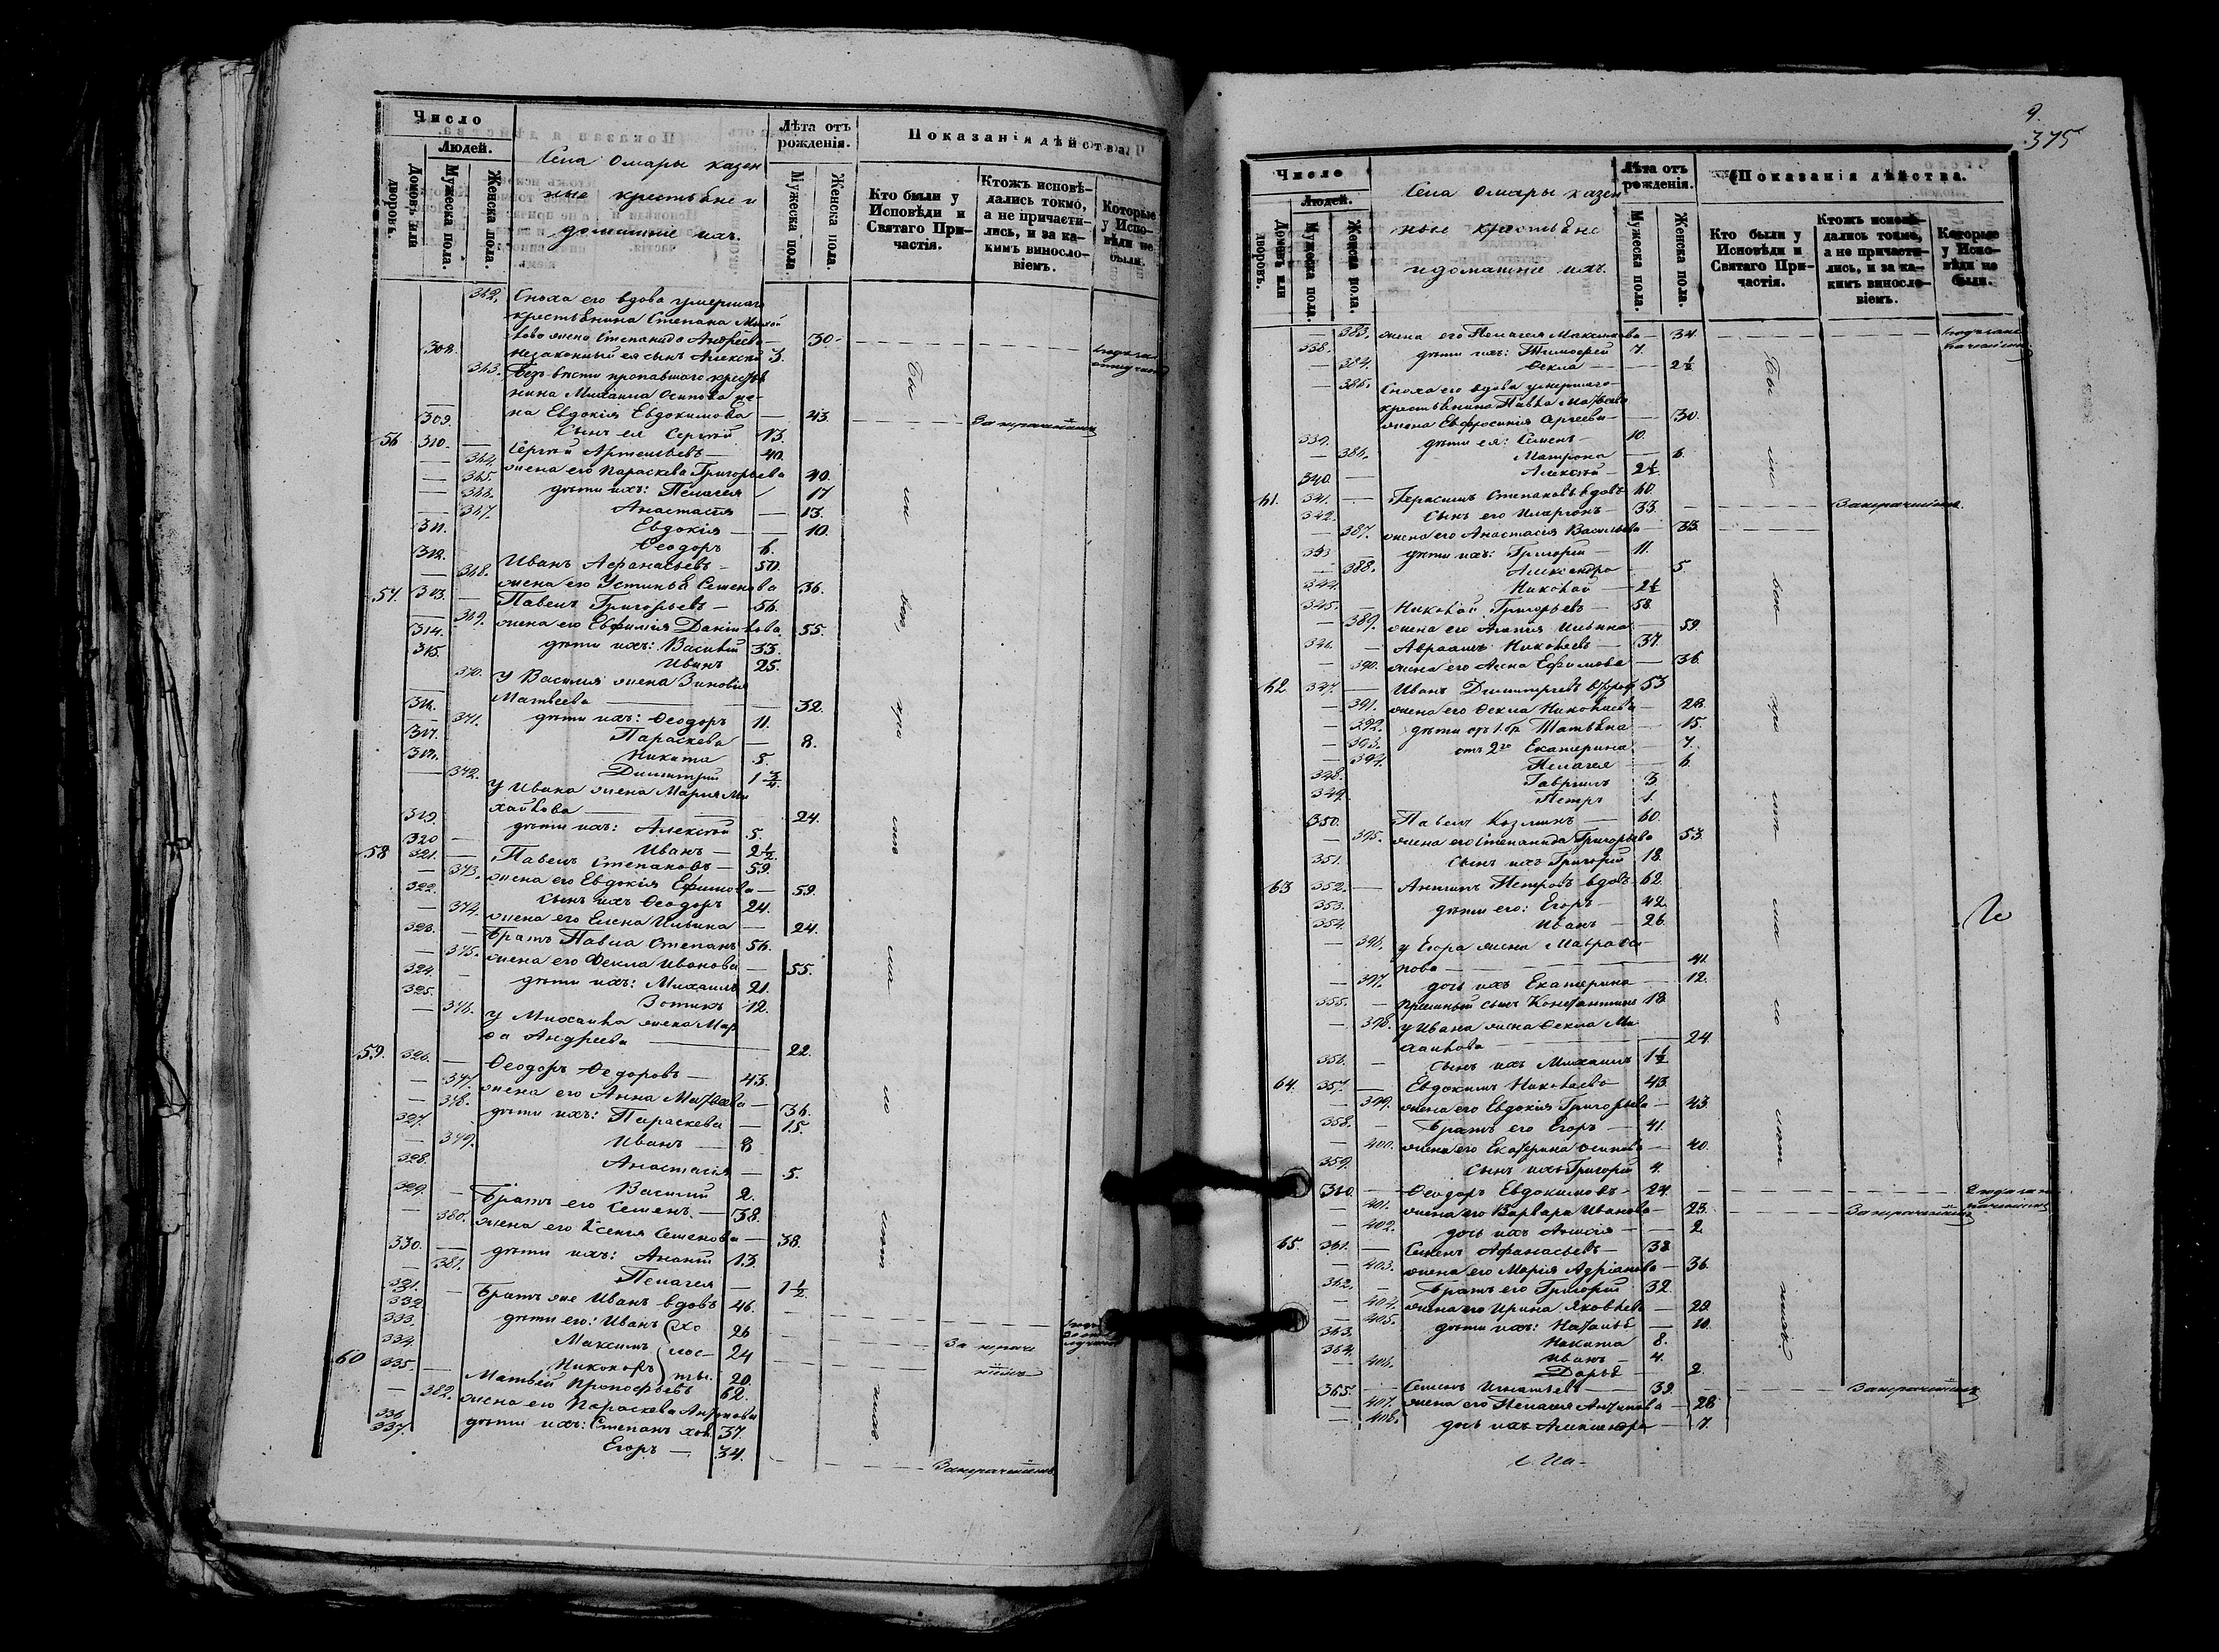 Число
Людей.
Домовъ или дворовъ.
Мужеска пола.
Женска пола.
Села Омары казен
ные крестьяне и
домашніе ихъ.
Лѣта отъ рожденія.
Мужеска пола
Женска пола.
Показанія дѣйства.
Кто были у Исповѣди и Святаго При-
частія.
Ктожъ исповѣ-
дались токмо,
а не причасти-
лись, и за ка-
кимъ виносло-
віемъ.
Которые
у Испо-
вѣди не
были.
362. Сноха его вдова умершаго
крестьянина Степана Михай
лова жена Степанида Андреева — 30
308. незаконный ея сынъ Алексѣй 3.
363. Безъ вѣсти пропавшаго крестья
нина Михаила Осипова же-
на Евдокія Евдокимова — 43.
309. Сынъ ея Сергѣй 13.
56 310. — Сергѣй Артемьевъ — 40.
— 364. жена его Параскева Григорьева 40.
— 365. дѣти ихъ: Пелагея 17
— 366. Анастасія — 13.
— 367. Евдокія — 10.
311. Ѳеодоръ 6.
312. Иванъ Аѳанасьевъ — 50.
— 368. жена его Устинья Семенова 36.
57. 313. — Павелъ Григорьевъ — 56.
— 369. жена его Евфимія Данилова 55.
314. дѣти ихъ: Василій 33.
315. Иванъ 25.
370. у Василія жена Зиновія
Матвеева — 32.
316. дѣти ихъ: Ѳеодоръ 11.
— 371. Параскева — 8.
317. Никита 5.
318. Димитрій 1 3/4
— 372. у Ивана жена Марія Ми
хайлова — 24.
319. дѣти ихъ: Алексѣй 5.
320 — Иванъ — 2 1/2.
58 321. — Павелъ Степановъ — 59.
— 373. жена его Евдокія Ефимова — 59.
322. сынъ ихъ Ѳеодоръ 24.
— 374. жена его Елена Ильина — 24.
323. — Братъ Павла Степанъ 56.
— 375. жена его Ѳекла Иванова — 55.
324. дѣти ихъ: Михаилъ 21.
325. Зотикъ 12.
— 376. у Михаила жена Мар
ѳа Андреева — 22.
59. 326. — Ѳеодоръ Ѳедоровъ — 43.
— 377. жена его Анна — 36.
— 378. дѣти ихъ: Параскева — 15.
327. Иванъ — 8
— 379. Анастасія — 5.
328. Василій 2.
329. — Братъ его Семенъ — 38.
— 380. жена его Ксенія Семенова — 38
330. — дѣти ихъ: Ананій 13.
— 381. Пелагея — 1 1/2
331. — Братъ же Иванъ вдовъ 46.
332. дѣти его: Иванъ хо 26
333. Максимъ лос- 24
334. Никоноръ ты. 20.
60 335. — Матвѣй Прокофьевъ 62.
— 382. жена его Параскева
336 дѣти ихъ: Степанъ хол 37.
337. Егоръ — 34.
За нерачѣніемъ
За нерачѣніемъ
За нерачѣніемъ
9.
375
Число
Людей.
Домовъ или дворовъ.
Мужеска пола.
Женска пола.
Села Омары казен
ные крестьяне
и домашніе ихъ.
Лѣта отъ рожденія.
Мужеска пола.
Женска пола.
Показанія дѣйства.
Кто были у
Исповѣди и
Святаго При-
частія.
Ктожъ исповѣ-
дались токмо,
а не причасти-
лись, и за ка-
кимъ виносло-
віемъ.
Которые
у Испо-
вѣди не
были.
— 383. жена его Пелагея Максимова — 34.
338. дѣти ихъ: Тимоѳей 7.
— 384. Ѳекла — 2 1/2
— 385. Сноха его вдова умершаго
крестьянина Павла Матвѣева
жена Евфросинія Сергеева — 30.
339. дѣти ея: Семенъ — 10.
— 386. Матрона — 6.
340. Алексѣй — 2 1/2.
61. 341. — Герасимъ Степановъ вдовъ 60.
342. Сынъ его Иларіонъ — 33.
— 387. жена его Анастасія Васильева — 33.
343 дѣти ихъ: Григорій — 11.
— 388. Александра — 5.
344. Николай — 2 1/2
345. — Николай Григорьевъ — 58
— 389. жена его Агапія Ильина — 59.
346. — Авраамъ Николаевъ — 37.
— 390. жена его Анна Ефимова — 36.
62 347. — Иванъ Димитріевъ 53
— 391. жена его Ѳекла Николаева — 28.
— 392. дѣти отъ 1. бр. Татьяна — 15.
— 393. отъ 2го Екатерина — 7.
— 394. Пелагея — 6.
348. Гавріилъ 3.
349. Петръ 1.
350. Павелъ Козминъ — 60.
— 395. жена его Степанида Григорьева 53.
351. сынъ ихъ Григорій 18.
63 352. — Антипъ Петровъ вдовъ 62.
353. дѣти его: Егоръ — 42.
354. Иванъ — 26.
— 396. у Егора жена Мавра
пова — 41.
— 397. дочь ихъ Екатерина — 12.
355. — Пріемный сынъ Константинъ 18
— 398. у Ивана жена Ѳекла Ми
хайлова — 24
356. — сынъ ихъ Михаилъ 1 1/2
64. 357. — Евдокимъ Николаевъ 43.
— 399. жена его Евдокія Григорьева — 43.
358. — Братъ его Егоръ — 41.
— 400. жена его Екатерина Осипова — 40.
359. сынъ ихъ Григорій 4.
360. — Ѳеодоръ Евдокимовъ — 24.
— 401. жена его Варвара Иванова — 23.
— 402. дочь ихъ Анисія — 2.
65. 361. — Семенъ Афанасьевъ — 38
— 403. жена его Марія Адріанова — 36.
362. — Братъ его Григорій 32.
— 404. жена его Ирина Яковлева — 28.
— 405. дѣти ихъ: Наталья — 10.
363. Никита 8.
364. Иванъ — 4.
— 406. Дарья — 2.
365. — Семенъ Игнатьевъ — 39.
— 407. жена его Пелагея Антипова — 28
— 408. дочь ихъ Александра — 7.
За нерачѣніемъ
За нерачѣніемъ
За нерачѣніемъ